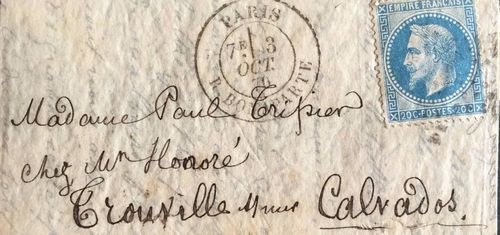 PARIS
7E 3
OCT
70
R. BONAPARTE
EMPIRE FRANÇAIS
20 C POSTES 20 C
Madame Paul Tripier
chez Mr Honoré
Trouville s/mer Calvados.